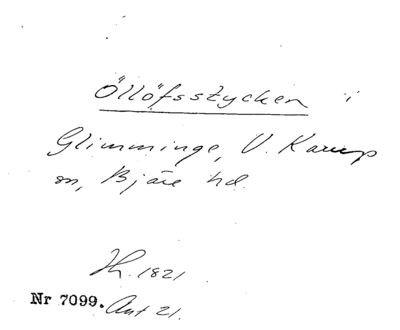 Öllöfsstycken i
Glimminge, V. Karup
sn, Bjäre hd.
Jh. 1821
Nr 7099. Ant 21.